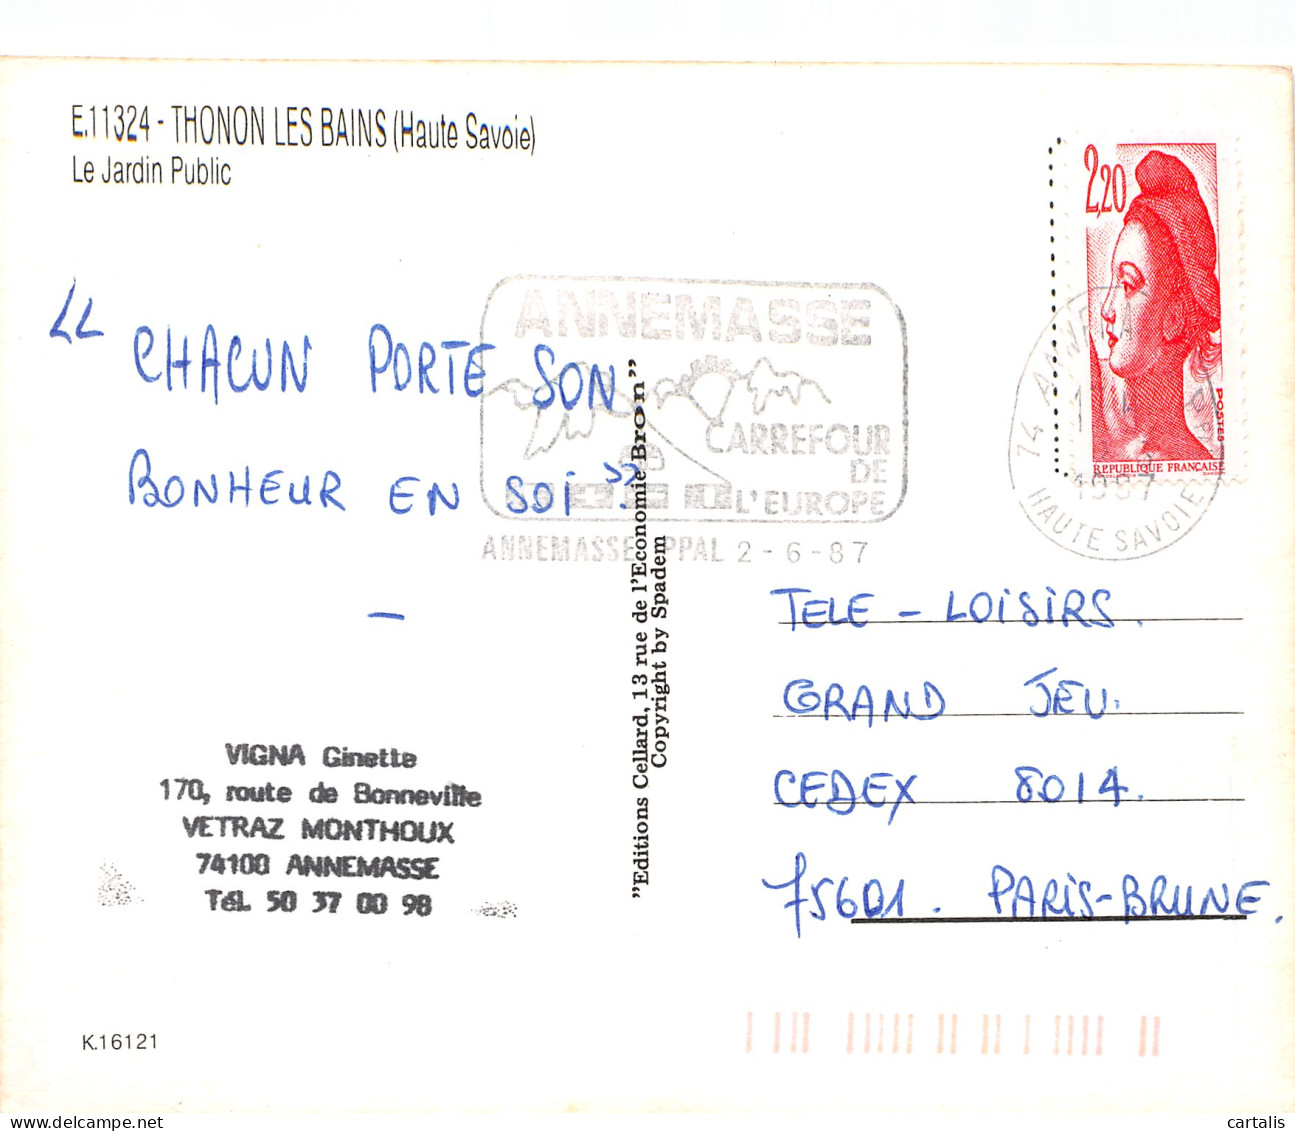 E.11324 - THONON LES BAINS (Haute Savoie)
Le Jardin Public
2,20
POSTES
REPUBLIQUE FRANÇAISE
ANNEMASSE
CARREFOUR
DE
L'EUROPE
ANNEMASSE PPAL 2-6-87
74
1987
HAUTE SAVOIE
« CHACUN PORTE SON
BONHEUR EN SOI. »
-
"Editions Cellard, 13 rue de l'Economie Bron"
Copyright by Spadem
TELE - LOISIRS.
GRAND JEU.
CEDEX 8014.
75601. PARIS-BRUNE.
VIGNA Ginette
170, route de Bonneville
VETRAZ MONTHOUX
74100 ANNEMASSE
Tél. 50 37 00 98
K.16121
cartalis